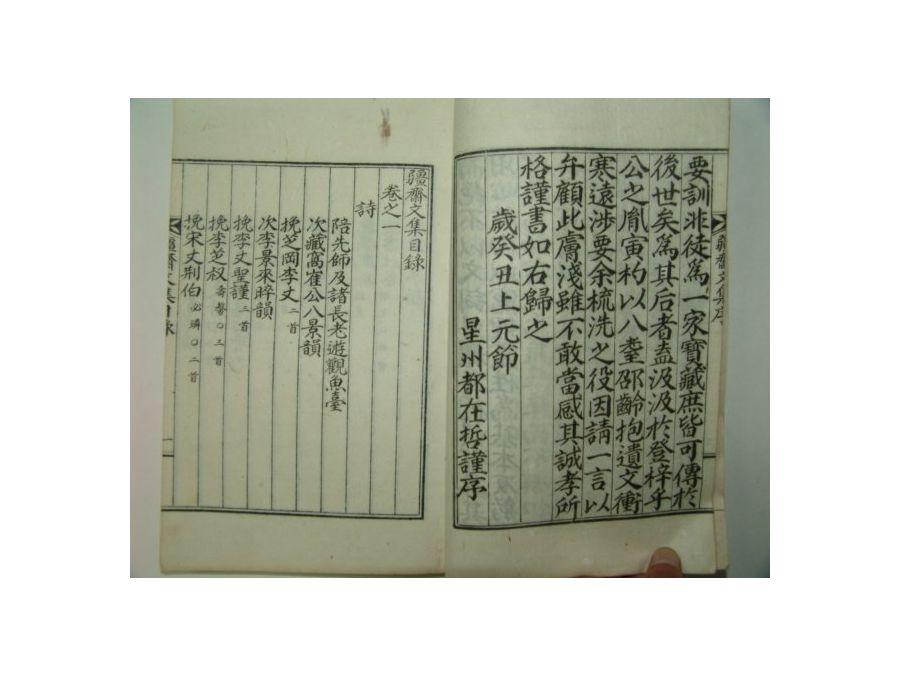 要訓非徒為一家寶藏庶皆可傳於
後世矣為其后者盍汲汲於登梓乎
公之胤寅杓以八耋邵齡抱遺文衝
寒遠涉要余梳洗之役因請一言以
弁顧此膚淺雖不敢當感其誠孝所
格謹書如右歸之
歲癸丑上元節
星州都在哲謹序
疆齋文集序
疆齋文集目錄
卷之一
詩
陪先師及諸長老遊觀魚臺
次藏窩崔公八景韻
挽芝岡李丈二首
次李景來晬韻
挽李丈聖謹三首
挽李芝叔壽馨○三首
挽宋丈荆伯必璘○二首
疆齋文集目錄
一